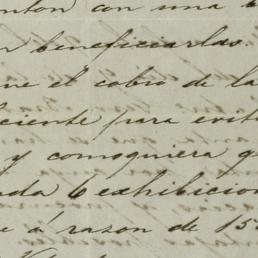 con una
beneficiarlas.
el cobro de la
ciente para evit
y comoquiera q
ada exhibicion
e á razon de 15